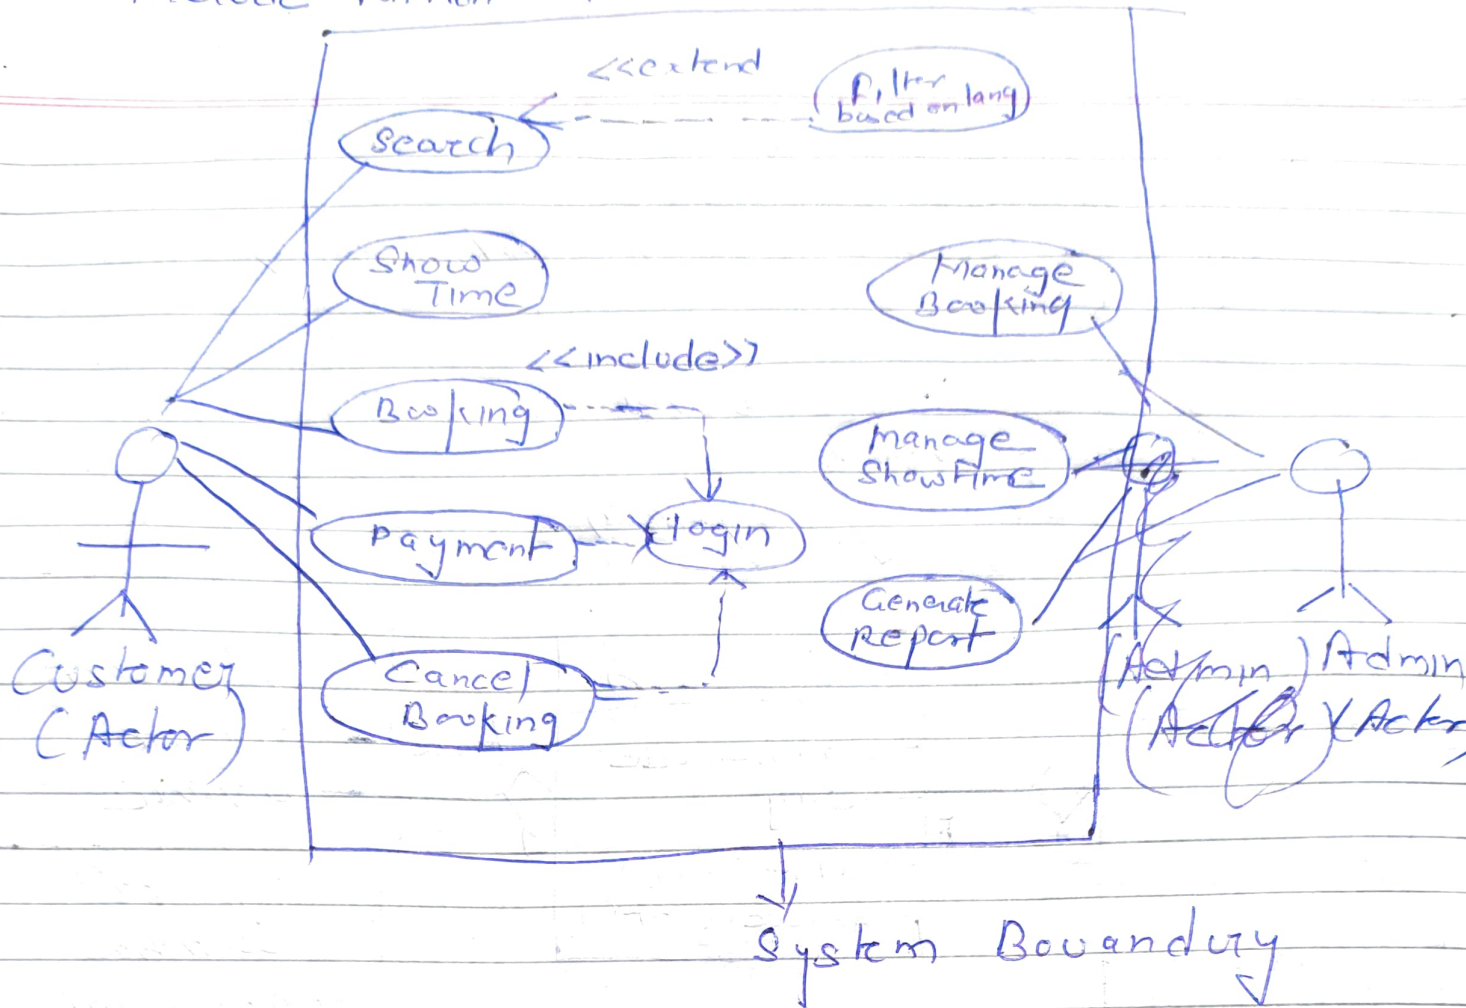 <<extend
Filter
based on lang
Search
Show
Time
Manage
Booking
<<include>>
Booking
Manage
ShowTime
Payment
login
Generate
Report
Cancel
Booking
Customer
(Actor)
(Admin)
(Actor)
Admin
(Actor)
System Bouandury